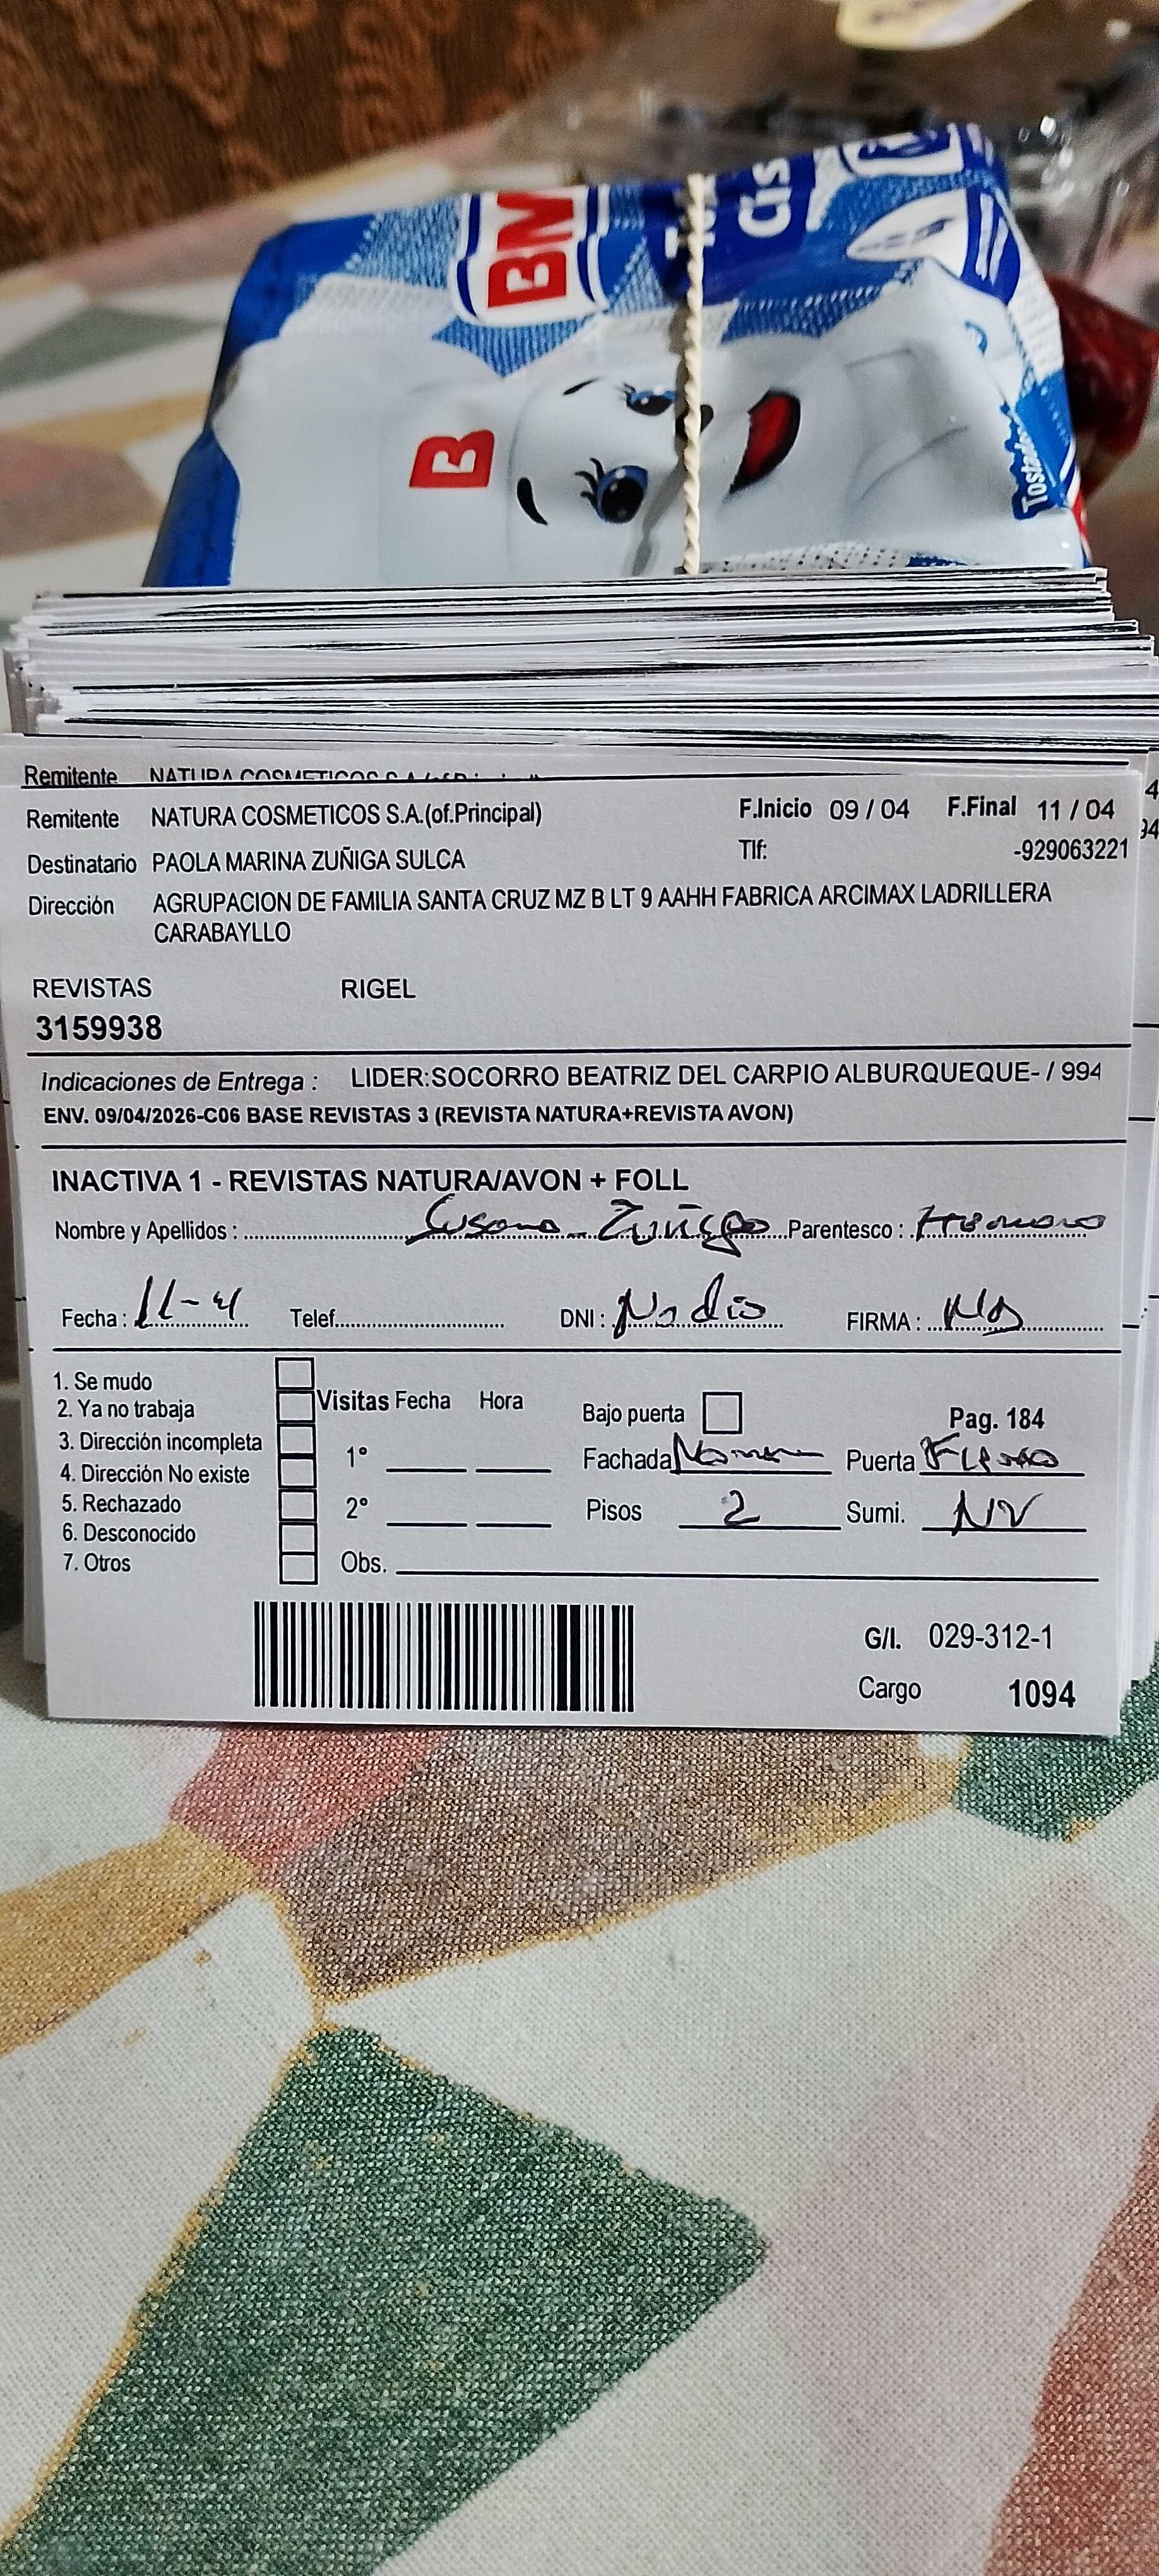 BM
Clas
B
Tostado
Remitente NATURA COSMETICOS S.A.(of.Principal)
Remitente NATURA COSMETICOS S.A.(of.Principal) F.Inicio 09 / 04 F.Final 11 / 04
Destinatario PAOLA MARINA ZUÑIGA SULCA Tlf: -929063221
Dirección AGRUPACION DE FAMILIA SANTA CRUZ MZ B LT 9 AAHH FABRICA ARCIMAX LADRILLERA
CARABAYLLO
REVISTAS RIGEL
3159938
Indicaciones de Entrega : LIDER:SOCORRO BEATRIZ DEL CARPIO ALBURQUEQUE- / 994
ENV. 09/04/2026-C06 BASE REVISTAS 3 (REVISTA NATURA+REVISTA AVON)
INACTIVA 1 - REVISTAS NATURA/AVON + FOLL
Nombre y Apellidos : Susana Zuñiga Parentesco : Hermana
Fecha : 11-4 Telef. DNI : No dio FIRMA : No
1. Se mudo
2. Ya no trabaja Visitas Fecha Hora Bajo puerta Pag. 184
3. Dirección incompleta 1° Fachada Puerta Fierro
4. Dirección No existe
5. Rechazado 2° Pisos 2 Sumi. NV
6. Desconocido
7. Otros Obs.
G/I. 029-312-1
Cargo 1094